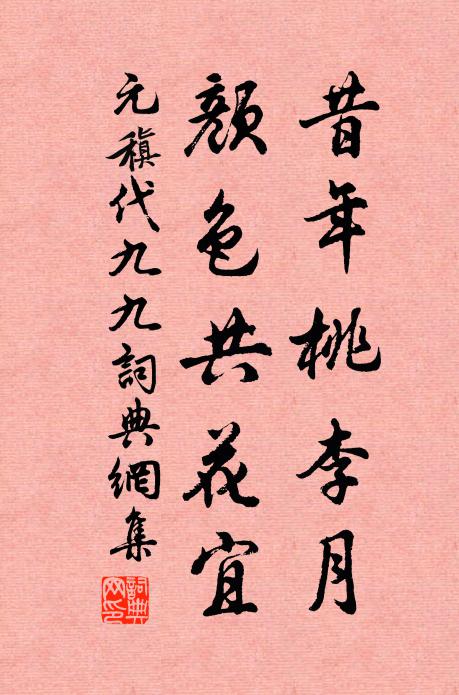 昔年桃李月
顏色共花宜
元稹代九九詞典網集
詞典網印